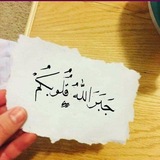 جَبَرَ اللهُ قُلُوبَكُمْ